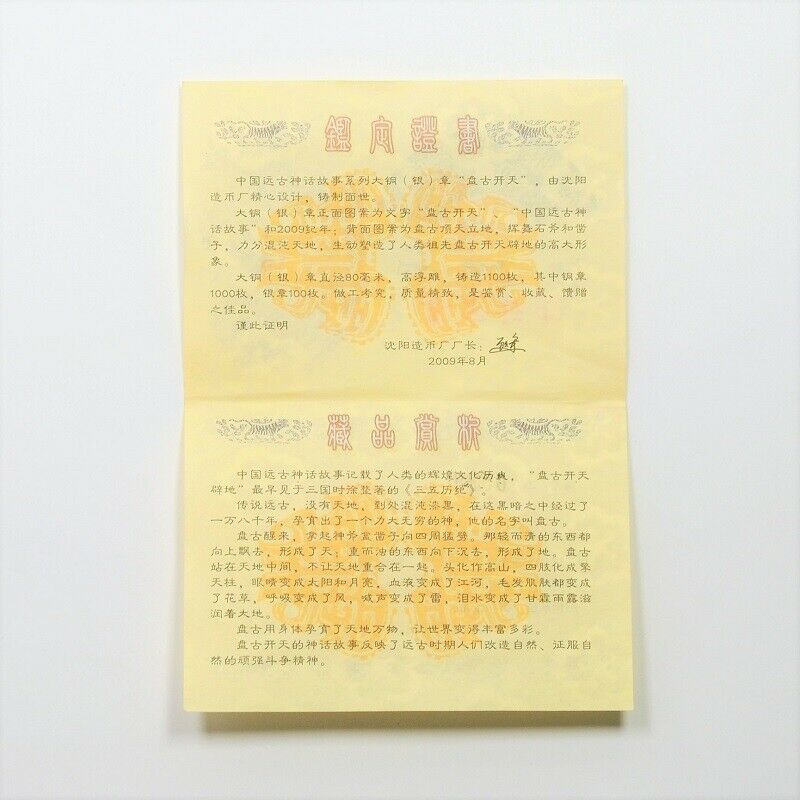 鑑定證書
中国远古神话故事系列大铜（银）章“盘古开天”，由沈阳
造币厂精心设计，铸制面世。
大铜（银）章正面图案为文字“盘古开天”、“中国远古神
话故事”和2009纪年；背面图案为盘古顶天立地，挥舞石斧和凿
子，力分混沌天地，生动塑造了人类祖先盘古开天辟地的高大形
象。
大铜（银）章直径80毫米，高浮雕，铸造1100枚，其中铜章
1000枚，银章100枚。做工考究，质量精致，是鉴赏、收藏、馈赠
之佳品。
谨此证明
沈阳造币厂厂长：
2009年8月
藏品赏析
中国远古神话故事记载了人类的辉煌文化历史，“盘古开天
辟地”最早见于三国时徐整著的《三五历纪》。
传说远古，没有天地，到处混沌漆黑，在这黑暗之中经过了
一万八千年，孕育出了一个力大无穷的神，他的名字叫盘古。
盘古醒来，拿起神斧鲨凿子向四周猛劈。那轻而清的东西都
向上飘去，形成了天；重而浊的东西向下沉去，形成了地。盘古
站在天地中间，不让天地重合在一起。头化作高山，四肢化成擎
天柱，眼睛变成太阳和月亮，血液变成了江河，毛发肌肤都变成
了花草，呼吸变成了风，喊声变成了雷，泪水变成了甘霖雨露滋
润着大地。
盘古用身体孕育了天地万物，让世界变得丰富多彩。
盘古开天的神话故事反映了远古时期人们改造自然、征服自
然的顽强斗争精神。